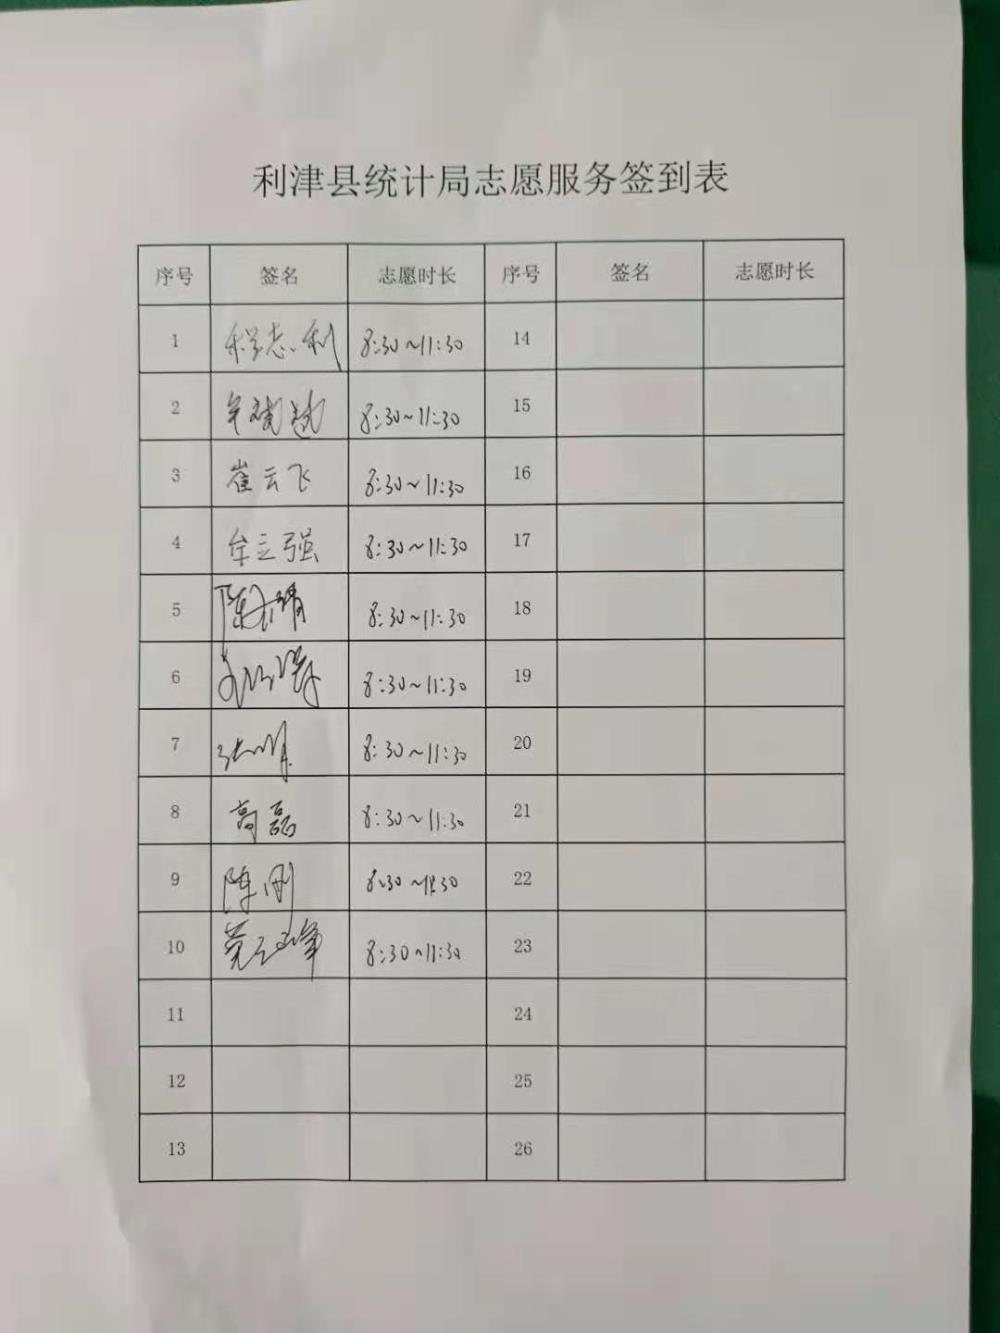 利津县统计局志愿服务签到表
序号 签名 志愿时长 序号 签名 志愿时长
1 程志利 8:30~11:30 14
2 8:30~11:30 15
3 崔云飞 8:30~11:30 16
4 牟立强 8:30~11:30 17
5 8:30~11:30 18
6 8:30~11:30 19
7 8:30~11:30 20
8 高磊 8:30~11:30 21
9 陈刚 8:30~11:30 22
10 8:30~11:30 23
11 24
12 25
13 26